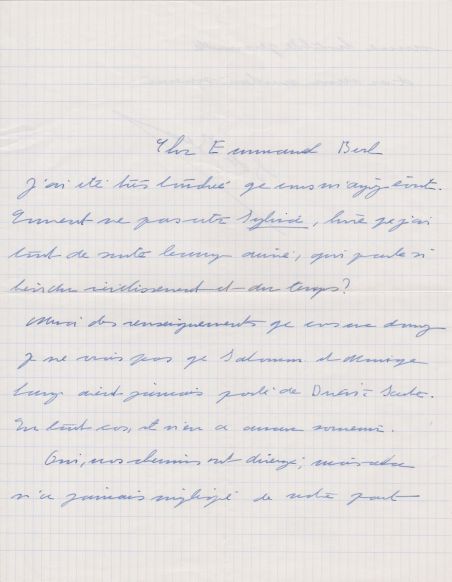 Cher Emmanuel Berl
J'ai été très touché que vous m'ayez écrit.
Comment ne pas citer Sylvia, livre que j'ai
tout de suite beaucoup aimé, qui parle si
bien du vieillissement et du temps?
Merci des renseignements que vous me donnez
je ne crois pas que Salomon et Monique
Lange aient jamais parlé de
En tout cas, je n'en ai aucun souvenir.
Oui, nos chemins ont divergé, mais cela
n'a jamais de notre part